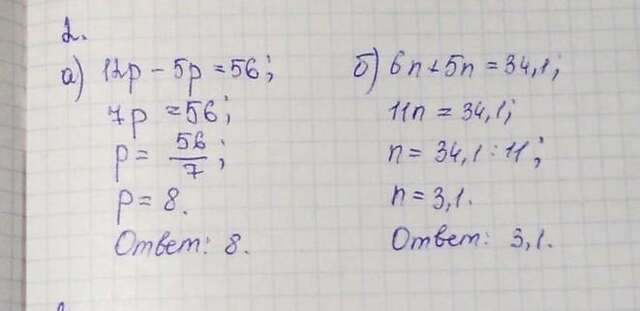 2.
а) 12p - 5p = 56;
7p = 56;
p = 56/7;
p = 8.
Ответ: 8.
б) 6n + 5n = 34,1;
11n = 34,1;
n = 34,1 : 11;
n = 3,1.
Ответ: 3,1.